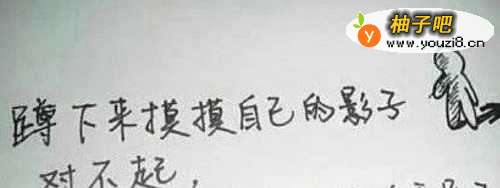 柚子吧
www.youzi8.cn
蹲下来摸摸自己的影子
对不起，